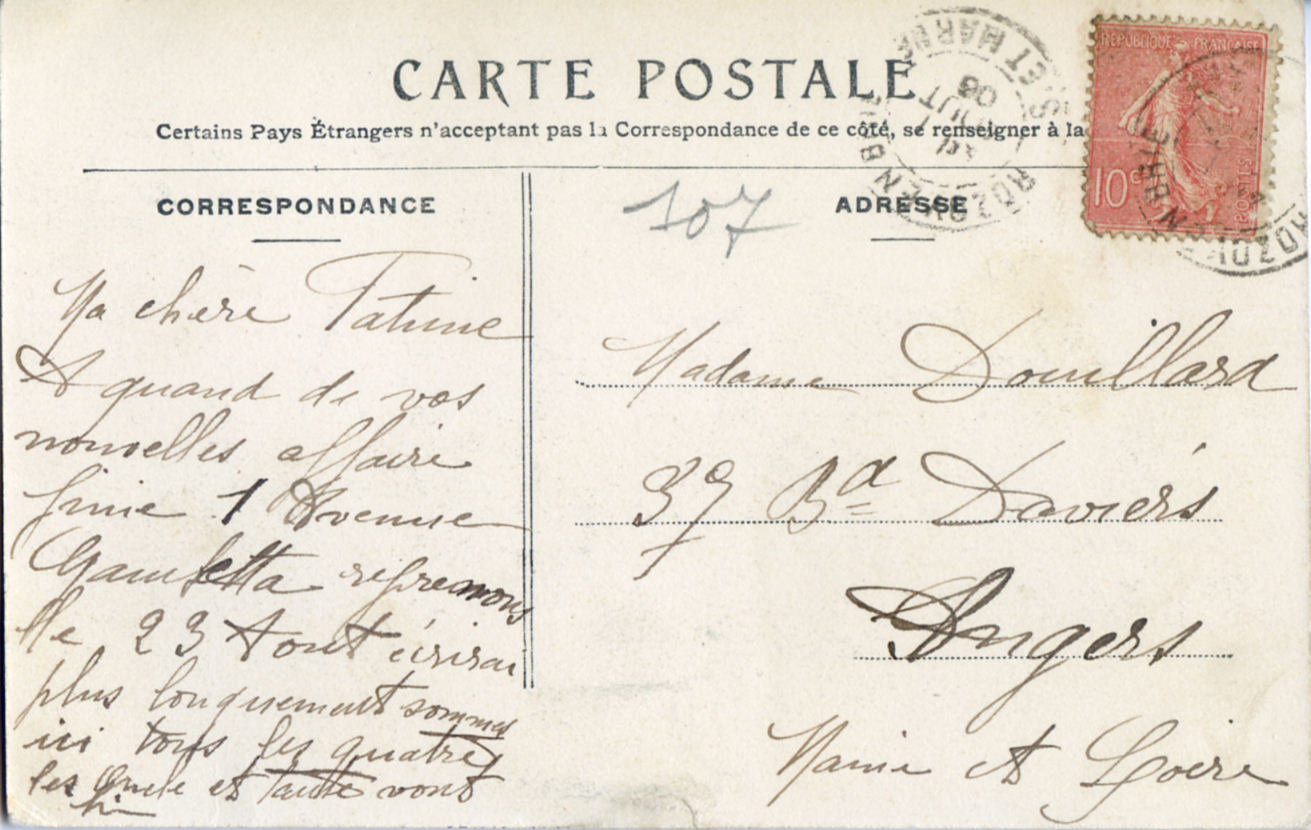 CARTE POSTALE
Certains Pays Étrangers n'acceptant pas la Correspondance de ce côté, se renseigner à la
CORRESPONDANCE
Ma chère Tatine
A quand de vos
nouvelles affaire
finie 1 Avenue
Gambetta reprenons
le 23 Aout écrirai
plus longuement sommes
ici tous les quatre
les Oncle et tante vont
107
ADRESSE
Madame Douillard
37 Bd Daviers
Angers
Maine et Loire
REPUBLIQUE FRANÇAISE
10c
POSTES
ROZOY EN BRIE
ET MARNE
AOUT
08
ROZOY EN BRIE